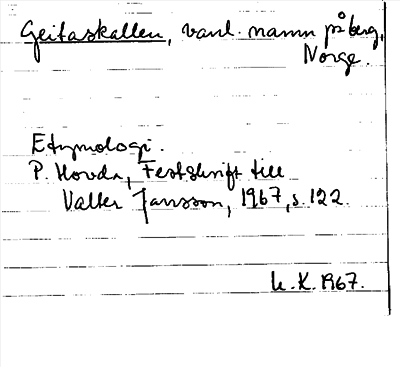 Geitaskallen, vanl. namn på berg,
Norge.
Etymologi.
P. Hovda, Festskrift till
Valter Jansson, 1967, s. 122.
L.K. 1967.